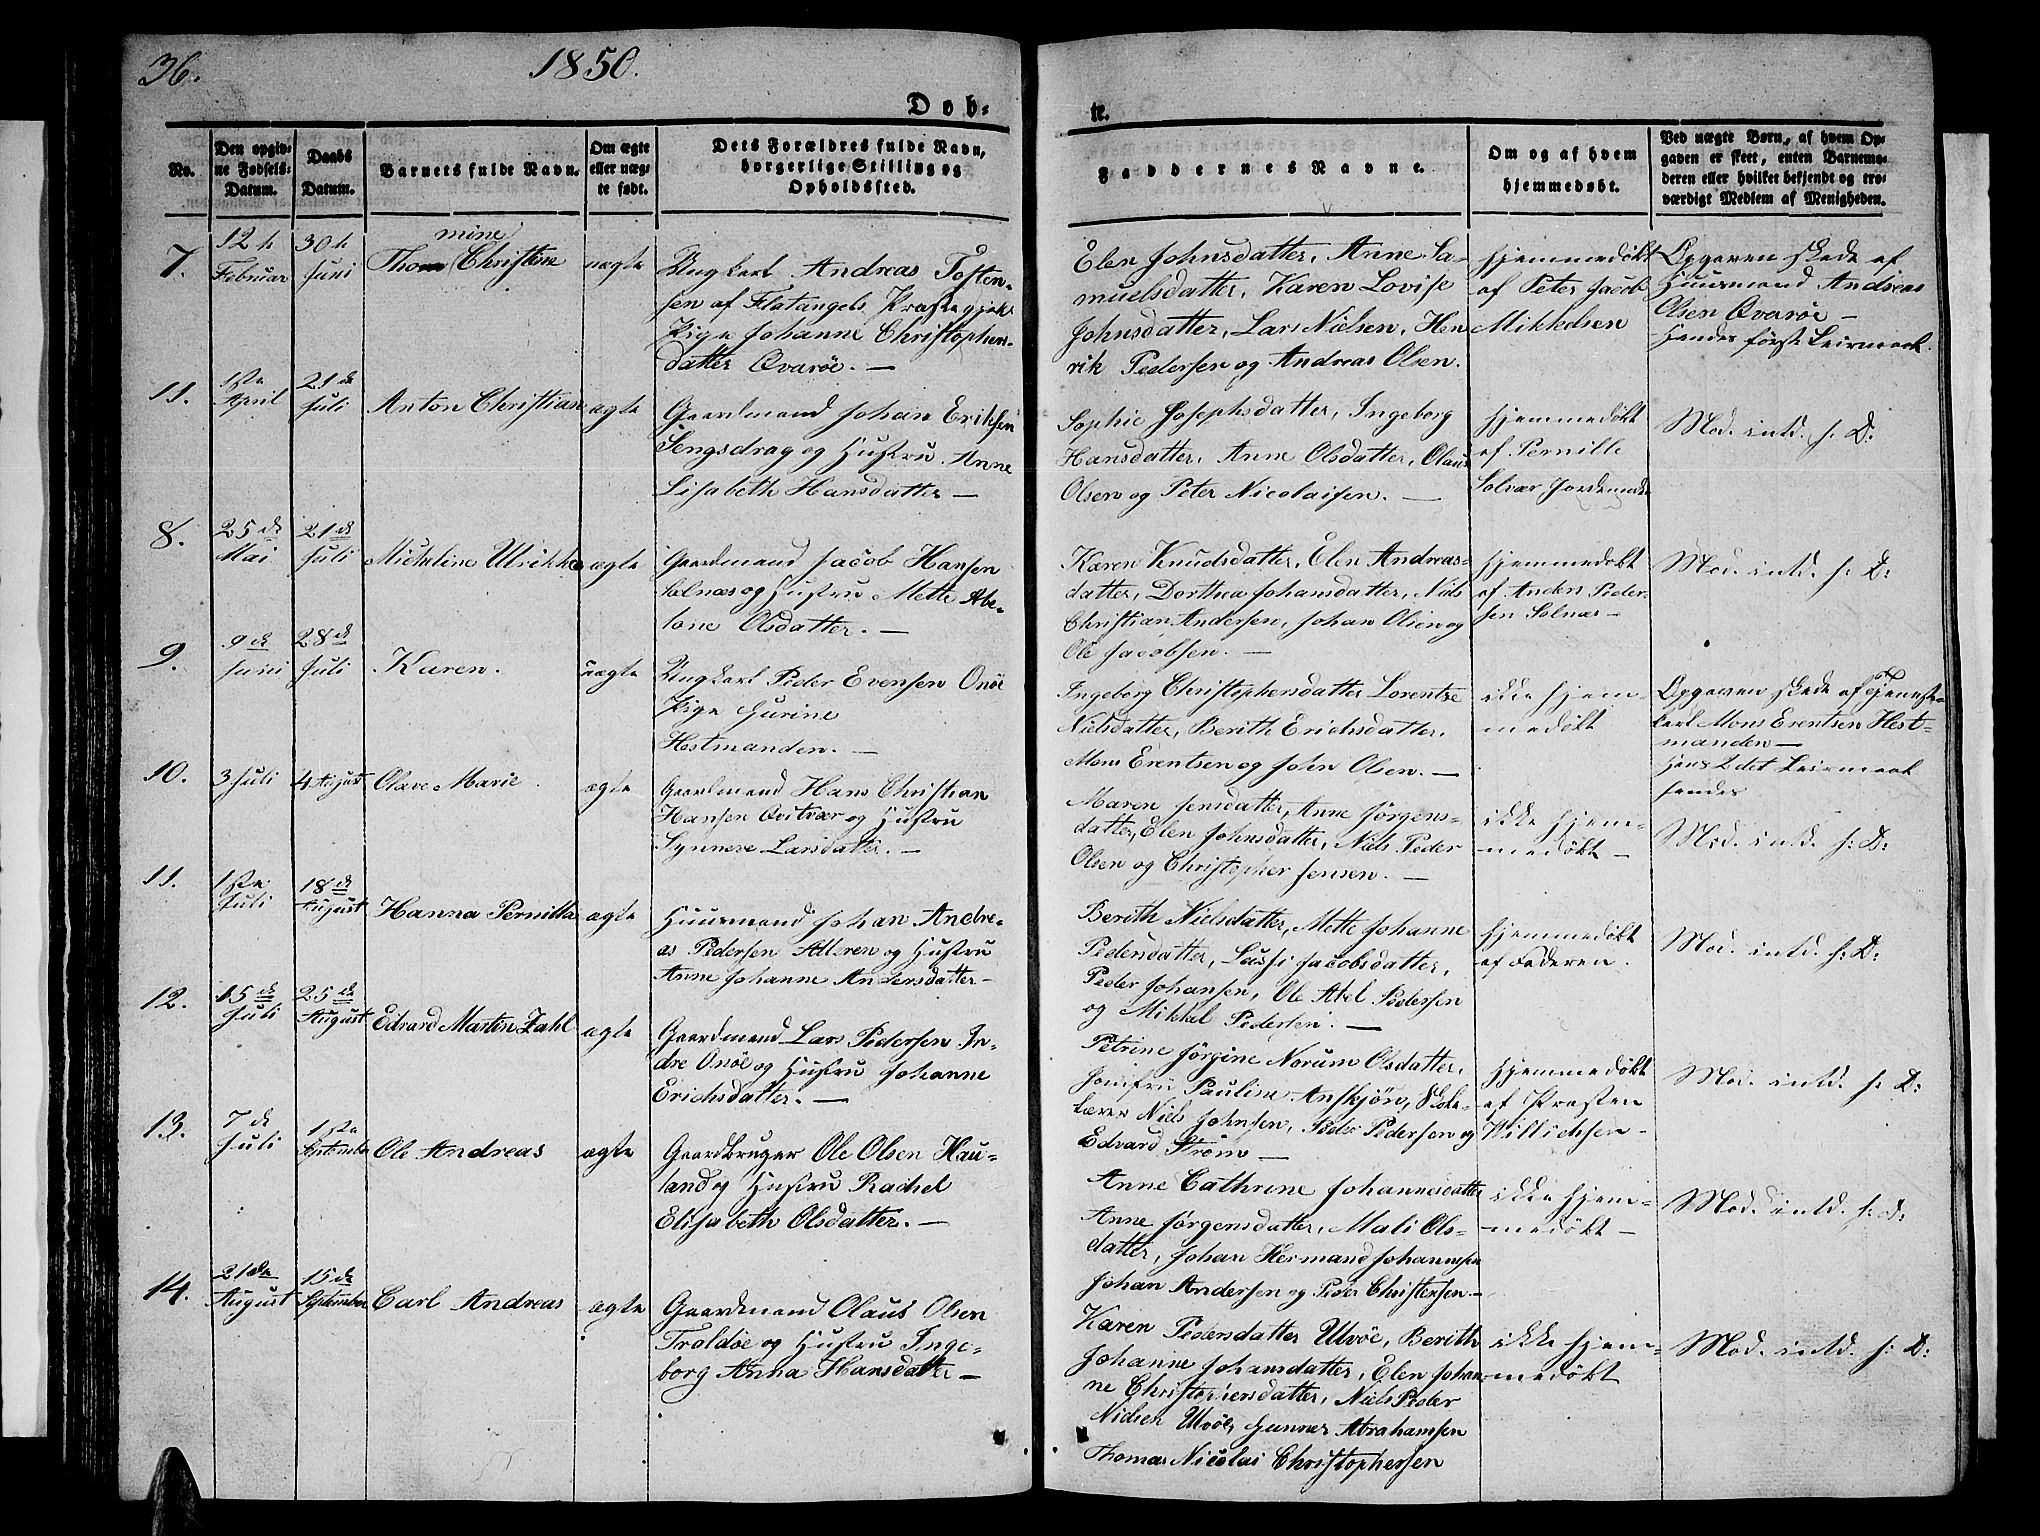 36.
1850.
Døb-
te.
No.
Den opgiv-
ne Fødsels-
Datum.
Daabs
Datum.
Barnets fulde Navn.
Om ægte
eller uæg-
te født.
Dets Forældres fulde Navn,
borgerlige Stilling og
Opholdssted.
Faddernes Navne.
Om og af hvem
hjemmedøbt.
Ved uægte Børn, af hvem Op-
gaven er skeet, enten Barnemo-
deren eller hvilket bekjendt og tro-
værdigt Medlem af Menigheden.
7.
12 h
Februar
30 h
Juni
mine
Thom Christine
uægte
Ungkarl Andreas Tosten-
sen af Flatangels Præstegjeld
Pige Johanne Christophers-
datter Qvarøe. —
Elen Johnsdatter, Anne Sa-
muelsdatter, Karen Lovise
Johnsdatter, Lars Nielsen, Hen
rik Pedersen og Andreas Olsen.
Hjemmedøbt
af Peter Jacob
Mikkelsen
Opgaven skede af
Huusmand Andreas
Olsen Qvarøe —
Hendes første Leiermaal.
11.
1ste
April
21 de
Juli
Anton Christian
ægte
Gaardmand Johan Eriksen
Sengsdrag og Hustru Anne
Lisabeth Hansdatter —
Sophie Josephsdatter, Ingeborg
Hansdatter, Anne Olsdatter, Olaus
Olsen og Peter Nicolaisen. —
Hjemmedøbt
af Pernille
Solvær Jordemoder
Mod. intd. s: D:
8.
25 de
Mai
21 de
Juli
Micheline Ulrikke
ægte
Gaardmand Jacob Hansen
Selnæs og Hustru Mette Abe-
lone Olsdatter. —
Karen Knudsdatter, Elen Andreas-
datter, Dorthea Johansdatter, Niels
Christian Andersen, Johan Olsen og
Ole Jacobsen. —
Hjemmedøbt
af Anders Peder
sen Solnæs —
Mod. intd. s: D:
9.
9 de
Juni
28 de
Juli
Karen.
uægte
Ungkarl Peder Evensen Onøe
Pige Gurine
Hestmanden. —
Ingeborg Christophersdatter Lorentze
Nielsdatter, Berith Erichsdatter,
Mons Erentsen og John Olsen. —
ikke hjem-
medøbt
Opgaven skede af Tjeneste-
karl Mons Erentsen Hest-
manden —
Hans 2det Leiermaal
hendes
10.
3 Juli
4 August
Olave Marie
ægte
Gaardmand Hans Christian
Hansen Qvitvær og Hustru
Synneve Larsdatter. —
Maren Jensdatter, Anne Jørgens-
datter, Elen Johnsdatter, Niels Peder
Olsen og Christopher Jensen. —
ikke hjem-
medøbt —
Mod. intd. s: D:
11.
1ste
Juli
18 de
August
Hanna Pernilla
ægte
Huusmand Johan Andre-
as Pedersen Alderen og Hustru
Anne Johanne Andersdatter —
Berith Nielsdatter, Mette Johanne
Pedersdatter, Lussi Jacobsdatter,
Peder Johansen, Ole Abel Pedersen
og Mikkel Pedersen. —
Hjemmedøbt
af Faderen.
Mod. intd. s: D:
12.
15 de
Juli
25 de
August
Edvard Martin Zahl
ægte
Gaardmand Lars Pedersen In-
dre Onøe og Hustru Johanne
Erichsdatter. —
Petrine Jørgine Norum Olsdatter,
Jomfru Pauline Anskjøn, Skole-
lærer Niels Johnsen, Peder Pedersen og
Edvard Strøm —
Hjemmedøbt
af Præsten
Willichsen —
Mod. intd. s: D:
13.
7 de
Juli
1ste
September
Ole Andreas
ægte
Gaardbruger Ole Olsen Hau-
land og Hustru Rachel
Elisabeth Olsdatter. —
Anne Cathrine Johannesdatter
Anne Jørgensdatter, Mali Ols-
datter, Johan Hermand Johannsen
Johan Andersen og Peder Christensen —
ikke hjem-
medøbt —
Mod. intd. s: D:
14.
21de
August
15 de
September
Carl Andreas
ægte
Gaardmand Olaus Olsen
Troldøe og Hustru Inge-
borg Anna Hansdatter —
Karen Pedersdatter Utvøe, Berith
Johanne Johansdatter, Elen Johan
ne Christophersdatter, Niels Peder
Nielsen Utvøe, Gunner Abrahamsen
Thomas Nicolai Christophersen
ikke hjem-
medøbt
Mod. intd. s: D: